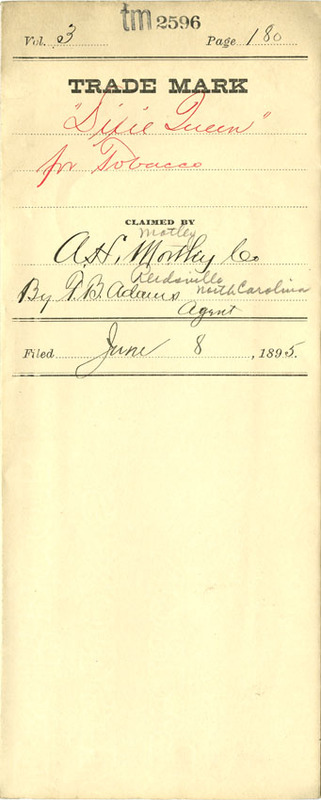 tm 2596
Vol. 3 Page 180
TRADE MARK
"Dixie Queen"
for Tobacco
CLAIMED BY
Motley
A. H. Mortley Co
Reidsville
By F. B. Adams North Carolina
Agent
Filed June 8, 1895.